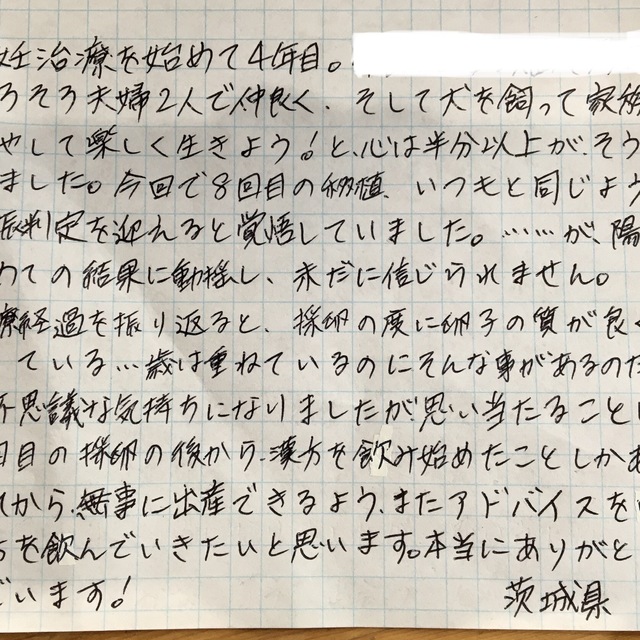 妊治療を始めて4年目。
ろそろ夫婦2人で仲良く、そして犬を飼って家族
やして楽しく生きよう！と、心は半分以上が、そう
ました。今回で8回目の移植、いつもと同じよう
娠判定を迎えると覚悟していました。……が、陽
めての結果に動揺し、未だに信じられません。
療経過を振り返ると、採卵の度に卵子の質が良く
ている…歳は重ねているのにそんな事があるのだ
不思議な気持ちになりましたが思い当たることは
回目の採卵の後から、漢方を飲み始めたことしかあ
てから、無事に出産できるよう、またアドバイスを
ちを飲んでいきたいと思います。本当にありがと
ざいます！ 茨城県